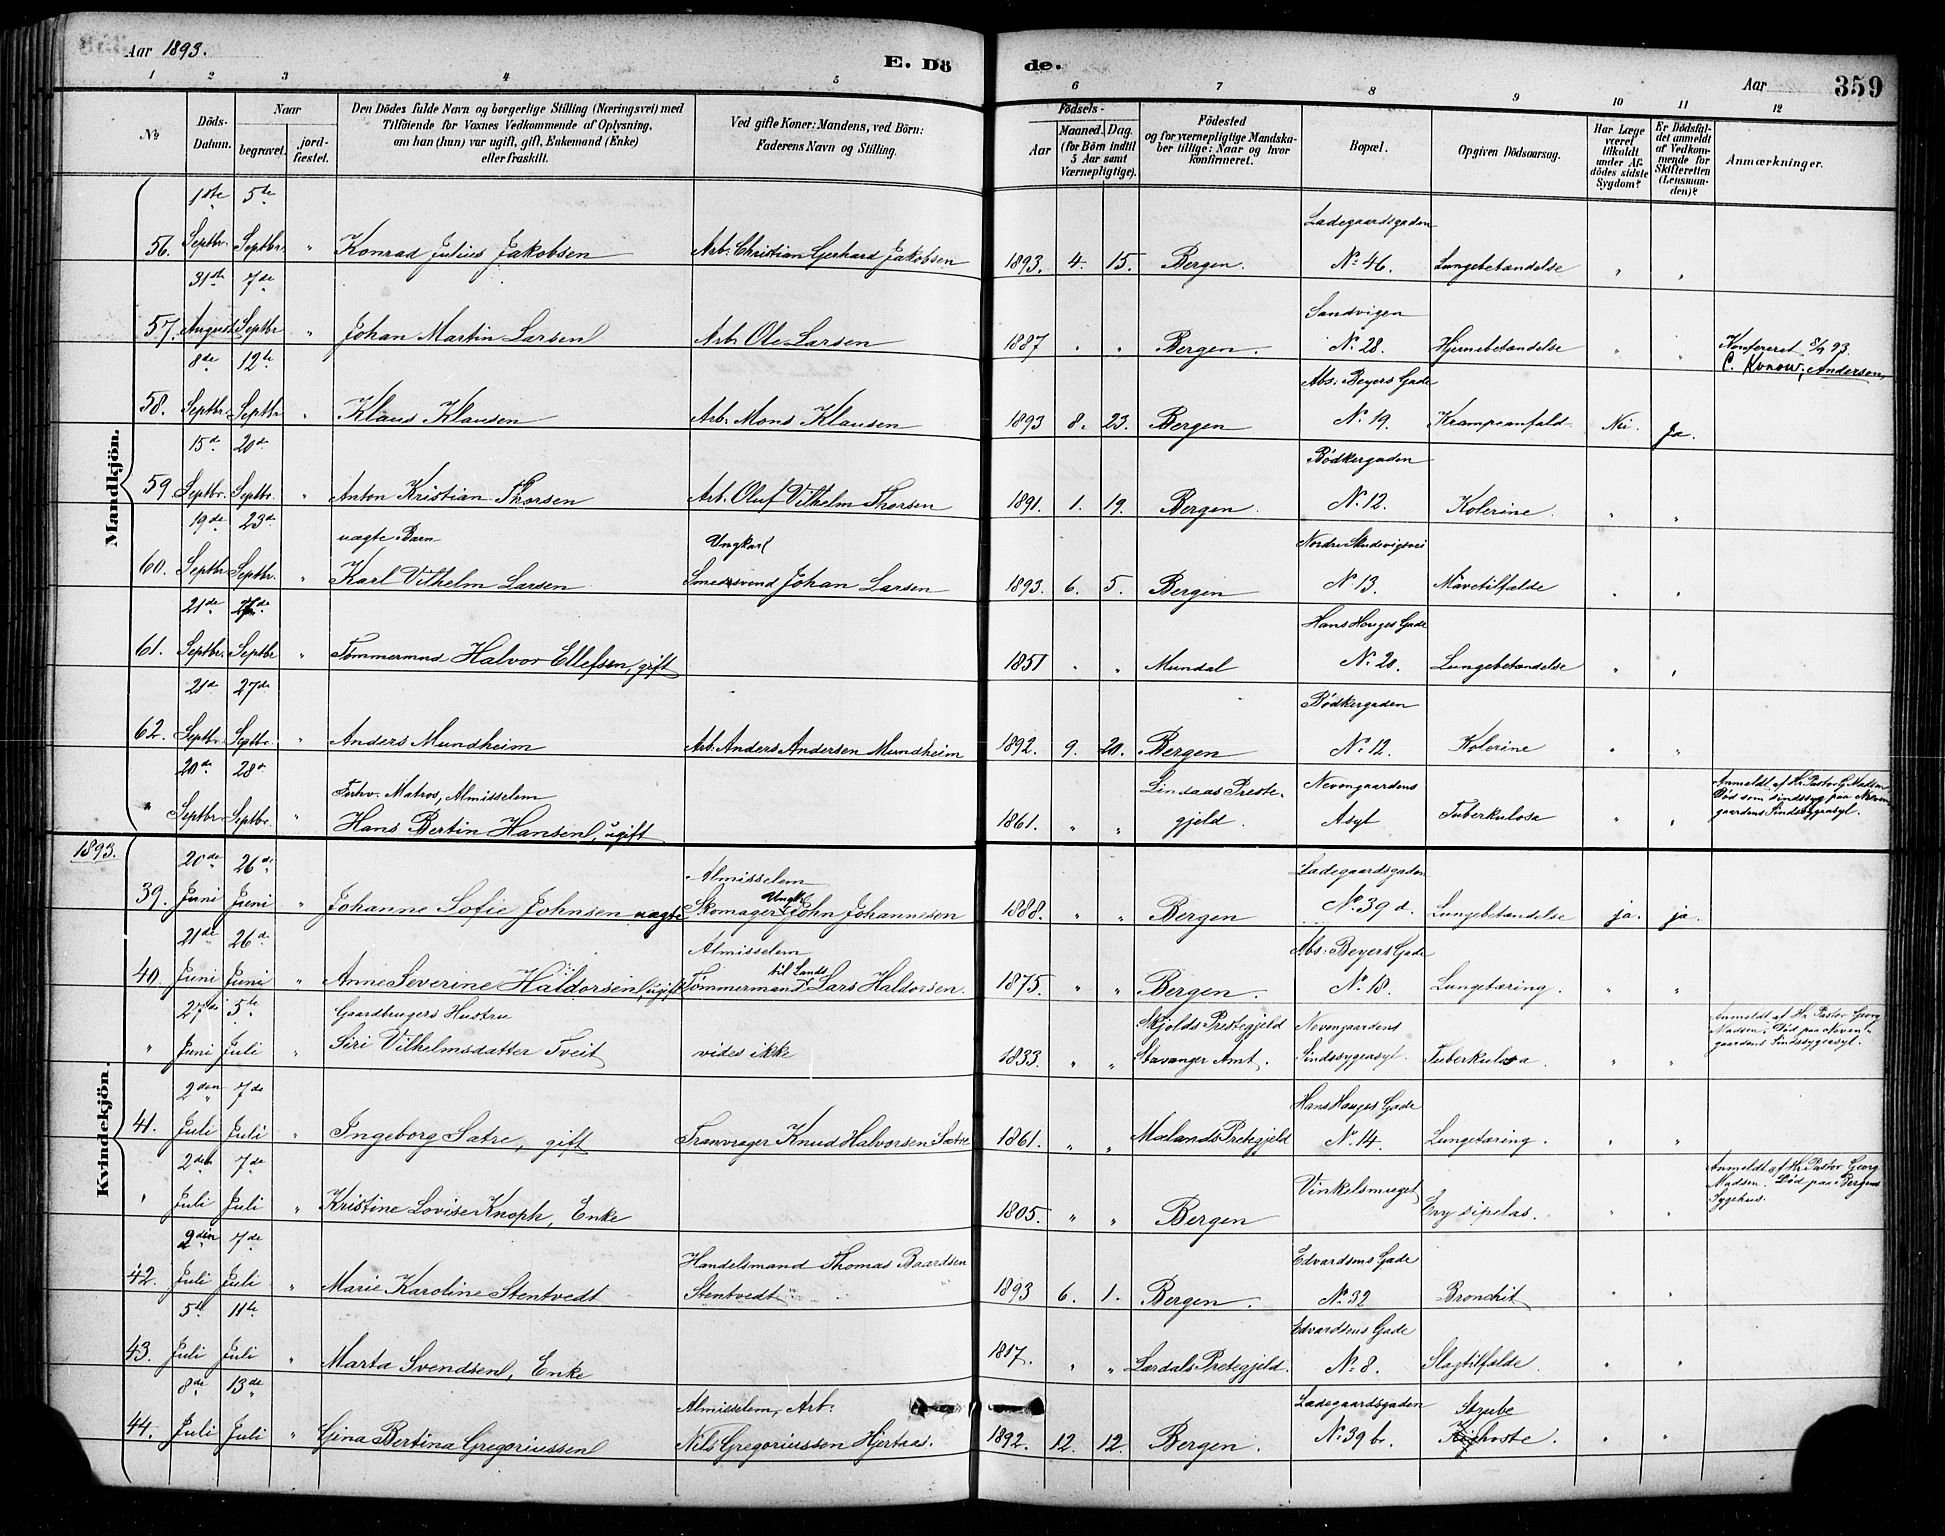 Aar 1893.
E. Dö
de.
Aar
359
1 2 3 4 5 6 7 8 9 10 11 12
No
Döds-Datum.
Naar
begravet.
jord-fæstet.
Den Dödes fulde Navn og borgerlige Stilling (Næringsvei) med
Tilföiende for Voxnes Vedkommende af Oplysning,
om han (hun) var ugift, gift, Enkemand (Enke)
eller fraskilt.
Ved gifte Koner: Mandens, ved Börn:
Faderens Navn og Stilling.
Födsels-
Aar
Maaned. Dag.
(for Börn indtil
5 Aar samt
Værnepligtige).
Födested
og for værnepligtige Mandska-
ber tillige: Naar og hvor
konfirmeret.
Bopæl.
Opgiven Dödsaarsag.
Har Læge
været
tilkaldt
under Af-
dödes sidste
Sygdom?
Er Dödsfal-
det anmeldt
af Vedkom-
mende for
Skifteretten
(Lensman-
den)?
Anmærkninger.
Mandkjön.
1ste 5te Ladegaardsgaden
56. Septbr. Septbr. " Konrad Julius Jakobsen Arb. Christian Gerhard Jakobsen 1893. 4. 15. Bergen. No 46. Lungebetændelse " "
31te 7de Sandvigen
57. August Septbr " Johan Martin Larsen Arb. Ole Larsen 1887 " " Bergen. No 28. Hjernebetændelse " " Konfereret 8/9 93.
C. Konow, Andersen,
8de 12te Abs. Beyers Gade
58. Septbr. Septbr " Klaus Klausen Arb. Mons Klausen 1893 8. 23. Bergen No 19. Krampeanfald Nei Ja.
15de 20de Bödkergaden
59 Septbr. Septbr. " Anton Kristian Thorsen Arb. Oluf Vilhelm Thorsen 1891. 1. 19. Bergen No 12. Kolerine. " "
19de 23de uægte Barn Ungkarl Nordre Skudevigsvei
60. Septbr. Septbr. " Karl Vilhelm Larsen Smedsvend Johan Larsen 1893. 6. 5. Bergen No 13. Mavetilfælde " "
21de Hans Hauges Gade
61. Septbr. Septbr " Tømmermand Halvor Ellefsen, gift 1851 " " Mundal No 20. Lungebetændelse " "
21de 27de Bödkergaden
62. Septbr. Septbr. " Anders Mundheim Arb. Anders Andersen Mundheim 1892. 9. 20. Bergen No 12. Kolerine " "
20de 28de Forhv. Matros, Almisselem Lindaas Preste- Nevengaardens
" Septbr. Septbr. " Hans Bertin Hansen, ugift 1861. " " gjeld. Asyl Tuberkulosa " " Anmeldt af Hr. Pastor G. Madsen
Død som sindssyg paa Neven-
gaardens Sindssygeasyl.
1893.
Kvindekjön.
20de 26de Almisselem Ladegaardsgaden
39. Juni Juni " Johanne Sofie Johnsen uægte Skomager Ungk. John Johannesen 1888. " " Bergen No 39 d. Lungebetændelse ja. ja.
21de 26de Almisselem Abs. Beyers Gade
40. Juni Juni " Anne Severine Haldorsen, ugift Tømmermand til Lands Lars Haldorsen. 1875. " " Bergen. No 18. Lungetæring. " "
27de 5te Gaardbrugers Hustru Skjolds Prestegjeld Nevengaardens
" Juni Juli " Siri Vilhelmsdatter Tveit vides ikke 1833. " " Stavanger Amt. Sindssygeasyl. Tuberkulosa. " " Anmeldt af Hr. Pastor Georg
Madsen. Død paa Neven-
gaardens Sindssygeasyl.
2den 7de Hans Hauges Gade
41. Juli Juli " Ingeborg Sætre, gift Tranvrager Knud Halvorsen Sætre 1861. " " Mælands Pretegjeld No 14. Lungetæring. " "
2den 7de Vinkelsmuget
" Juli Juli " Kristine Lovise Knoph, Enke 1805. " " Bergen Erysipelas. " " Anmeldt af Hr. Pastor Georg
Madsen. Død paa Bergens
Sygehus.
2den 7de Handelsmand Thomas Baardsen Edvardsens Gade
42. Juli Juli " Marie Karoline Stentvedt Stentvedt 1893 6. 1. Bergen. No 32 Bronchit " "
5te 11te Edvardsens Gade
43. Juli Juli " Marta Svendsen, Enke 1817. " " Lærdals Pretegjeld. No 8. Slagtilfælde. " "
8de 13de Almisselem, Arb. Ladegaardsgaden Strube
44. Juli Juli " Gina Bertina Gregoriussen Nils Gregoriussen Hjertaas. 1892. 12. 12. Bergen. No 39 b. hoste. " "